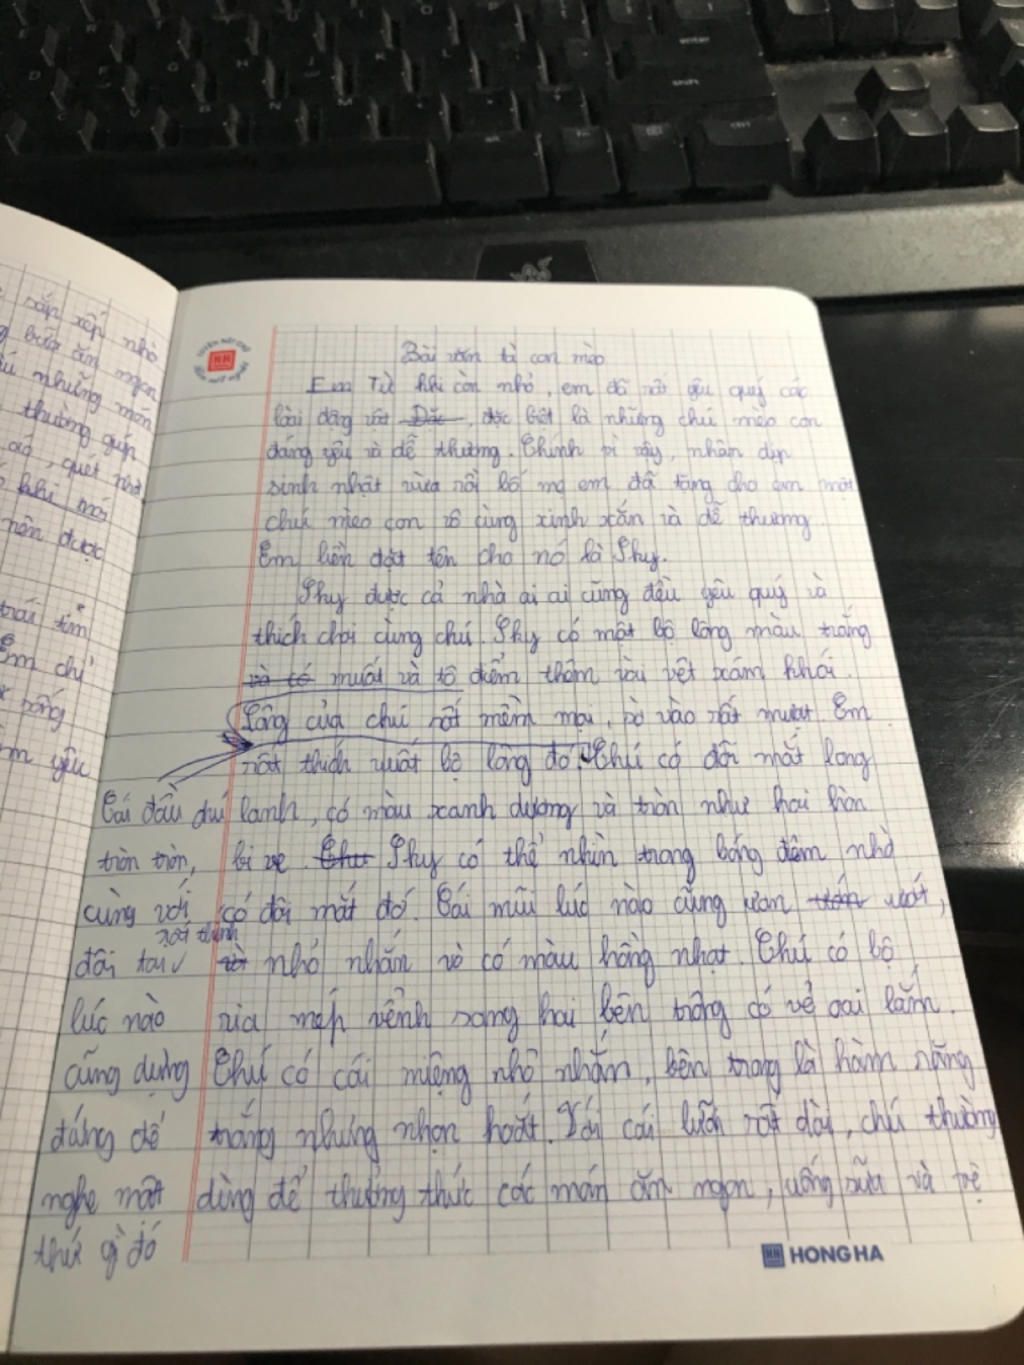 sắp xếp nhà
bữa ăn ngon
những món
thường giúp
áo, quét nhà
khi nói
nên được
trái tim
Em chỉ
sống
yêu
Bài văn tả con mèo
Em Từ khi còn nhỏ, em đã rất yêu quý các
loài động vật Đặc, đặc biệt là những chú mèo con
đáng yêu và dễ thương. Chính vì vậy, nhân dịp
sinh nhật vừa rồi bố mẹ em đã tặng cho em một
chú mèo con vô cùng xinh xắn và dễ thương.
Em liền đặt tên cho nó là Shy.
Shy được cả nhà ai ai cũng đều yêu quý và
thích chơi cùng chú. Shy có một bộ lông màu trắng
và có muốt và tô điểm thêm vài vệt xám khói.
Lông của chú rất mềm mại, sờ vào rất mượt. Em
rất thích vuốt bộ lông đó. Chú có đôi mắt long
lanh, có màu xanh dương và tròn như hai hòn
bi ve. Chú Shy có thể nhìn trong bóng đêm nhờ
có đôi mắt đó. Cái mũi lúc nào cũng ươn ướt,
nhỏ nhắn và có màu hồng nhạt. Chú có bộ
ria mép vểnh sang hai bên trông có vẻ oai lắm.
Chú có cái miệng nhỏ nhắn, bên trong là hàm răng
trắng nhưng nhọn hoắt. Với cái lưỡi rất dài, chú thường
dùng để thưởng thức các món ăn ngon, uống sữa và vệ
Cái đầu chú
tròn tròn,
cùng với
đôi tai
rất thính
lúc nào
cũng dựng
đứng để
nghe một
thứ gì đó
HONG HA